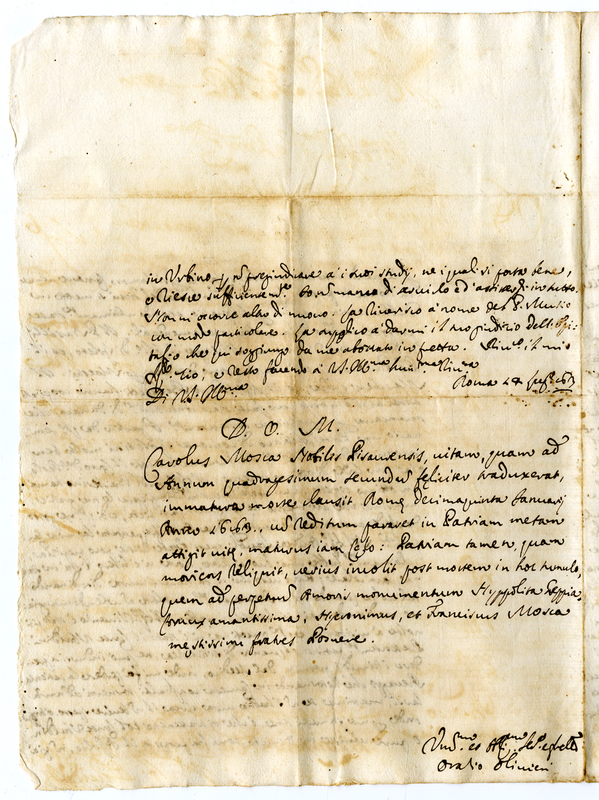 in Urbino p nō pregiudicare a i suoi studij, ne i quali si porta bene,
e riesce sufficientem.te Io nō manco d'assisterlo ed assister di in tutto.
Non mi occorre altro di nuovo. La riverisco a nome del P. Mutio
con modo particolare. La supplico a darmi il suo giudizio dell'Epi-
tafio che qui soggiungo da me abozzato in fretta. il mio
Sig.r Zio, e resto facendo a V.S. Ill.ma hum.ma riv.za
Di V.S. Ill.ma Roma 24
D. O. M.
Carolus Mosca Nobilis Pisaurensis, vitam, quam ad
Annum quadragesimum secundū feliciter traduxerat,
immatura morte clausit Romę decimaquinta Ianuarij
Anno 1669., ūd reditum pararet in Patriam metam
attigit vitę, maturus iam Cęlo: Patriam tamen, quam
moriens reliquit, verius incolit post mortem in hoc tumulo,
quem ad perpetuū Amoris monumentum Hyppolita
Coniux amantissima, Hyeronimus, et Franciscus Mosca
męstissimi fratres Posuere.
Um.mo et
Oratio Olivieri